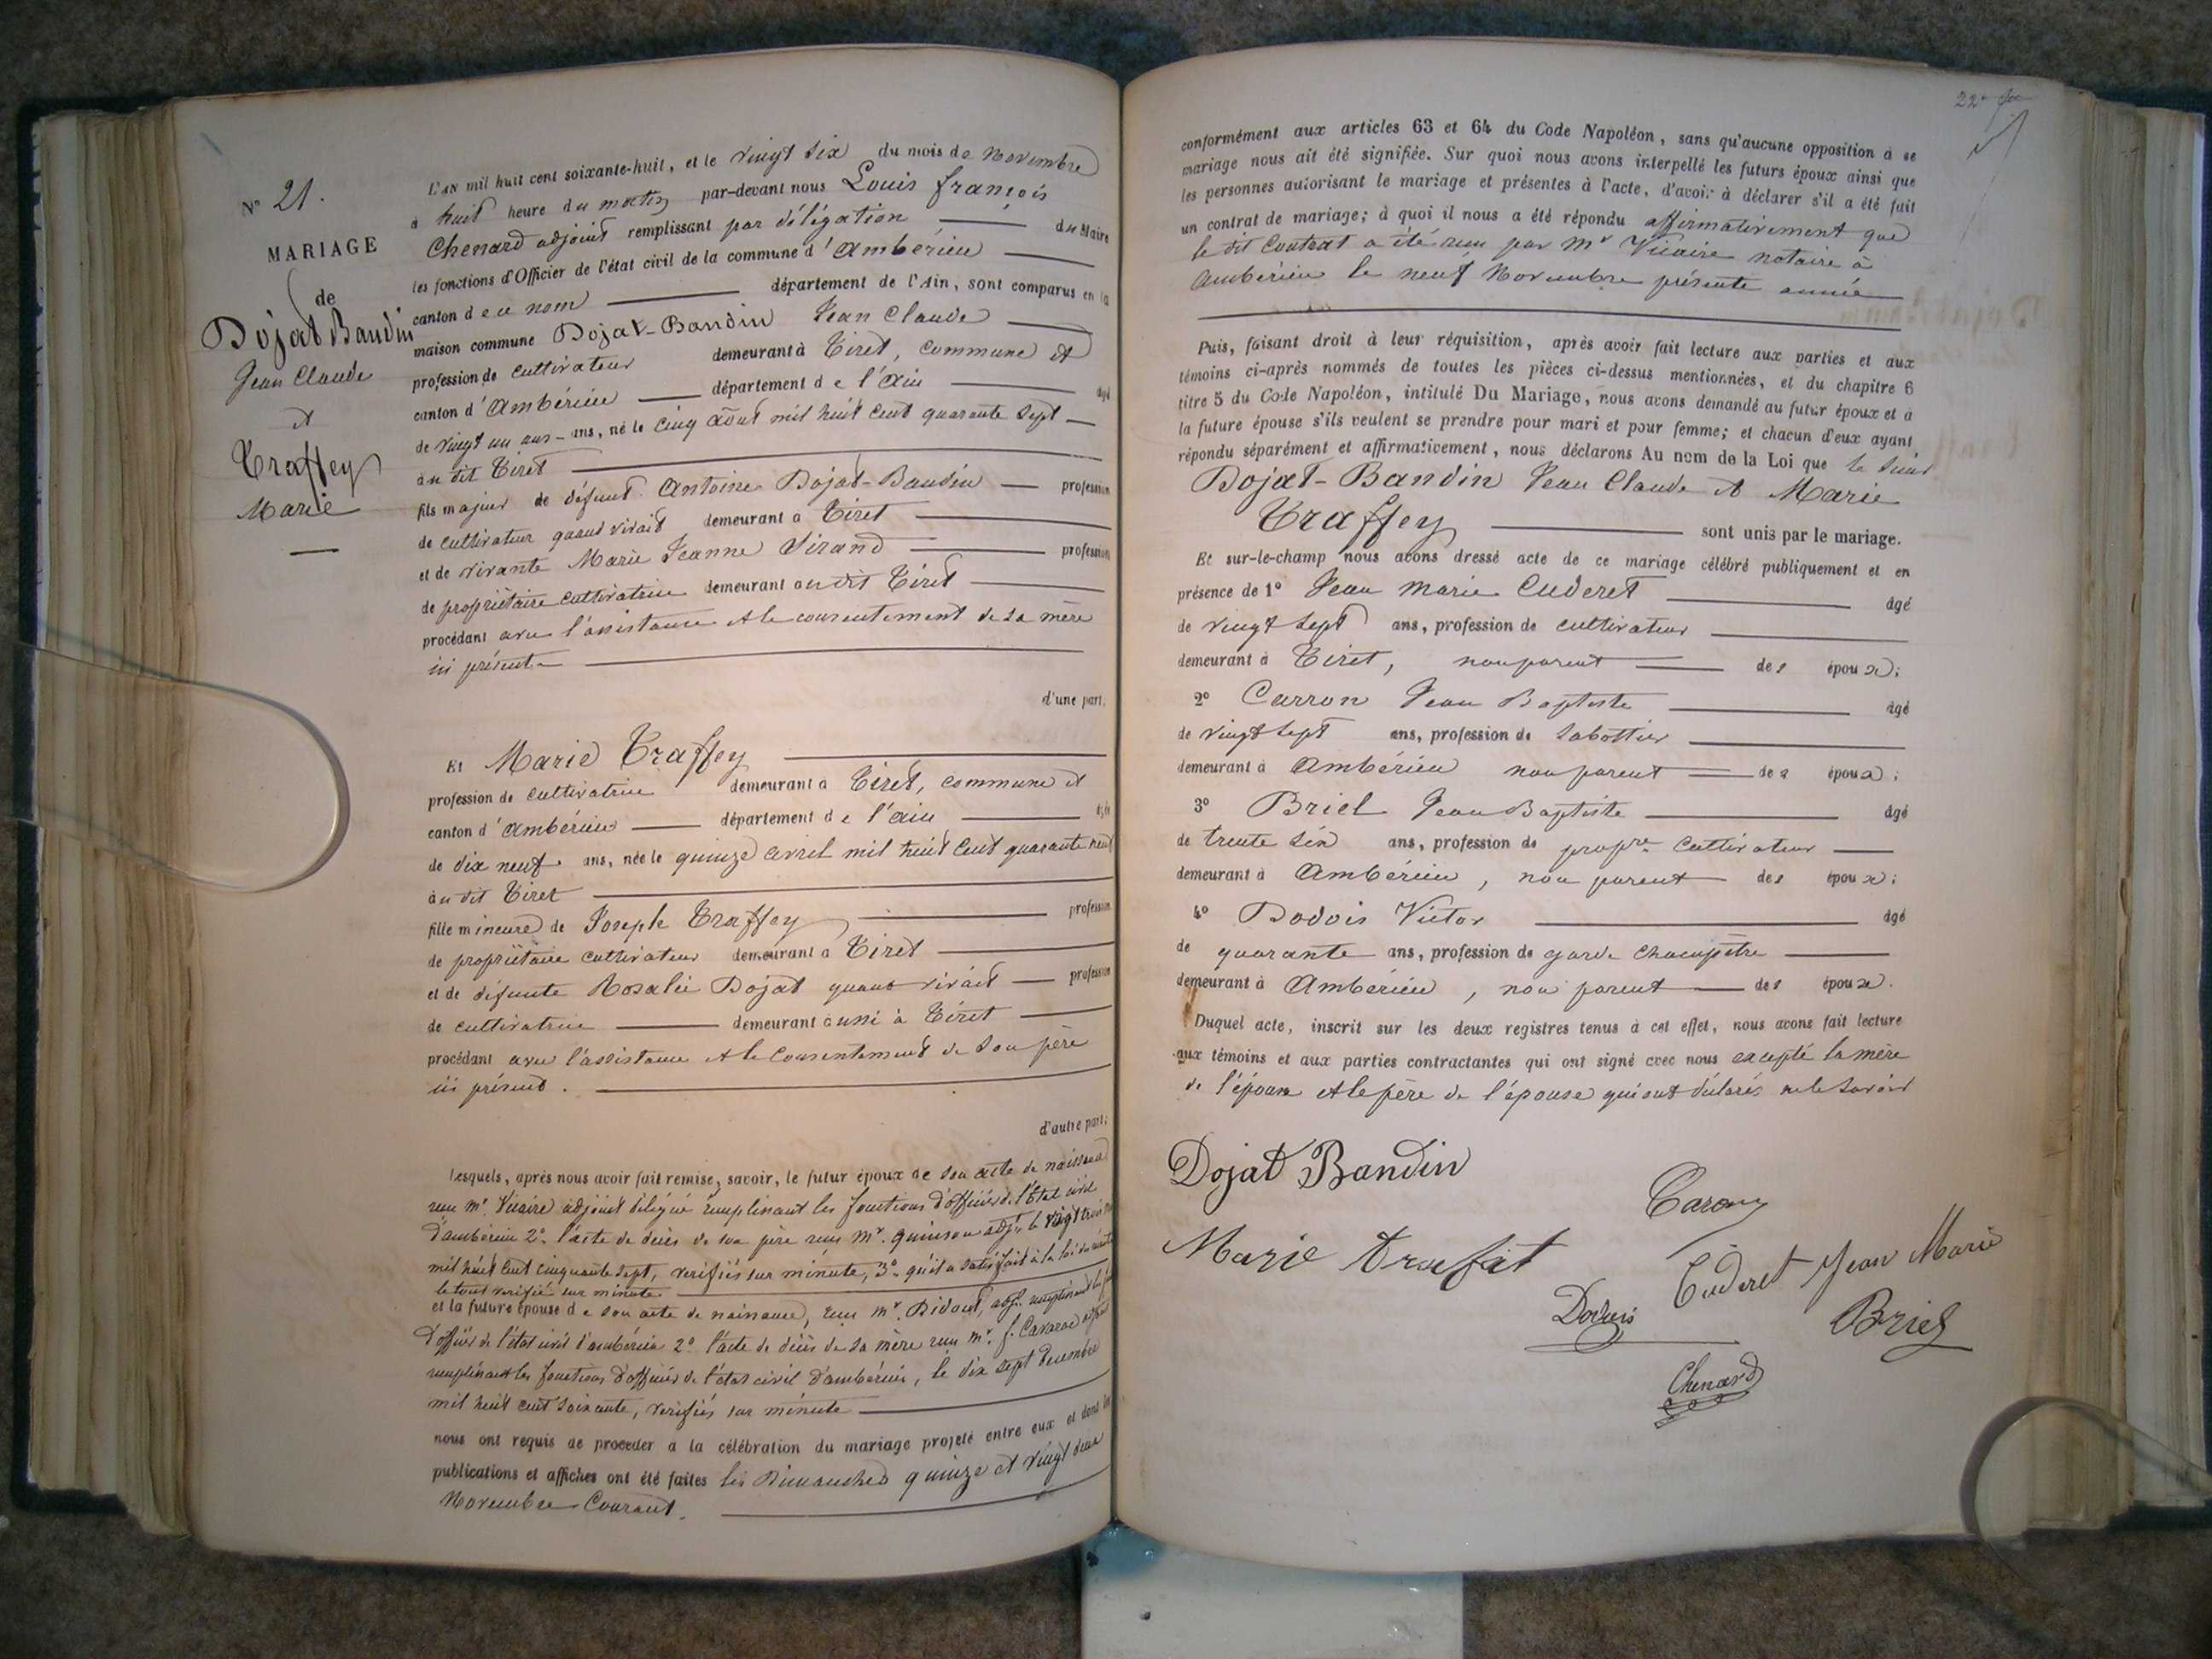 N° 21.
MARIAGE
de
Dojat Baudin
Jean Claude
et
Traffey
Marie
L'AN mil huit cent soixante-huit, et le vingt six du mois de Novembre
à huit heure du matin par-devant nous Louis françois
Chenard adjoint remplissant par délégation du Maire
les fonctions d'Officier de l'état civil de la commune d'Ambérieu
canton de ce nom département de l'Ain, sont comparus en la
maison commune Dojat-Baudin Jean Claude
profession de cultivateur demeurant à Tiret, commune et
canton d'Ambérieu département de l'Ain âgé
de vingt un ans ans, né le cinq août mil huit cent quarante sept
au dit Tiret
fils majeur de défunt Antoine Dojat-Baudin profession
de cultivateur quand vivait demeurant à Tiret
et de vivante Marie Jeanne Sirand profession
de propriétaire cultivatrice demeurant au dit Tiret
procédant avec l'assistance et le consentement de sa mère
ici présente
d'une part;
Et Marie Traffey
profession de cultivatrice demeurant à Tiret, commune et
canton d'Ambérieu département de l'Ain âgée
de dix neuf ans, née le quinze avril mil huit cent quarante neuf
au dit Tiret
fille mineure de Joseph Traffey profession
de propriétaire cultivateur demeurant à Tiret
et de défunte Rosalie Dojat quand vivait profession
de cultivatrice demeurant aussi à Tiret
procédant avec l'assistance et le consentement de son père
ici présent.
d'autre part;
Lesquels, après nous avoir fait remise, savoir, le futur époux de son acte de naissance
reçu Mr. Vicaire adjoint délégué remplissant les fonctions d'officier de l'état civil
d'ambérieu 2° l'acte de décès de son père reçu Mr. quinson adjt le vingt trois
mil huit cent cinquante sept, vérifiés sur minute, 3° qu'il a satisfait à la loi
le tout vérifié sur minute
et la future épouse de son acte de naissance, reçu Mr. Bidaut, adjt. remplissant les
d'officier de l'état civil d'ambérieu 2° l'acte de décès de sa mère reçu Mr. f. Cavaroc
remplissant les fonctions d'officier de l'état civil d'ambérieu, le dix sept Décembre
mil huit cent soixante, vérifiés sur minute
nous ont requis de procéder à la célébration du mariage projeté entre eux et dont les
publications et affiches ont été faites les Dimanches quinze et vingt deux
Novembre Courant.
conformément aux articles 63 et 64 du Code Napoléon, sans qu'aucune opposition à ce
mariage nous ait été signifiée. Sur quoi nous avons interpellé les futurs époux ainsi que
les personnes autorisant le mariage et présentes à l'acte, d'avoir à déclarer s'il a été fait
un contrat de mariage; à quoi il nous a été répondu affirmativement que
le dit Contrat a été reçu par Mr Vicaire notaire à
Ambérieu le neuf Novembre présente année
Puis, faisant droit à leur réquisition, après avoir fait lecture aux parties et aux
témoins ci-après nommés de toutes les pièces ci-dessus mentionnées, et du chapitre 6
titre 5 du Code Napoléon, intitulé Du Mariage, nous avons demandé au futur époux et à
la future épouse s'ils veulent se prendre pour mari et pour femme; et chacun d'eux ayant
répondu séparément et affirmativement, nous déclarons Au nom de la Loi que le sieur
Dojat-Baudin Jean Claude et Marie
Traffey sont unis par le mariage.
Et sur-le-champ nous avons dressé acte de ce mariage célébré publiquement et en
présence de 1° Jean Marie Cuderet âgé
de vingt sept ans, profession de cultivateur
demeurant à Tiret, non parent des époux;
2° Carron Jean Baptiste âgé
de vingt sept ans, profession de sabottier
demeurant à Ambérieu non parent des époux;
3° Briel Jean Baptiste âgé
de trente six ans, profession de propre cultivateur
demeurant à Ambérieu, non parent des époux;
4° Dodois Victor âgé
de quarante ans, profession de garde champêtre
demeurant à Ambérieu, non parent des époux.
Duquel acte, inscrit sur les deux registres tenus à cet effet, nous avons fait lecture
aux témoins et aux parties contractantes qui ont signé avec nous excepté la mère
de l'époux et le père de l'épouse qui ont déclarés ne le savoir
Dojat Baudin
Caron
Marie trafait
Cuderet Jean Marie
Dodois
Briel
Chenard